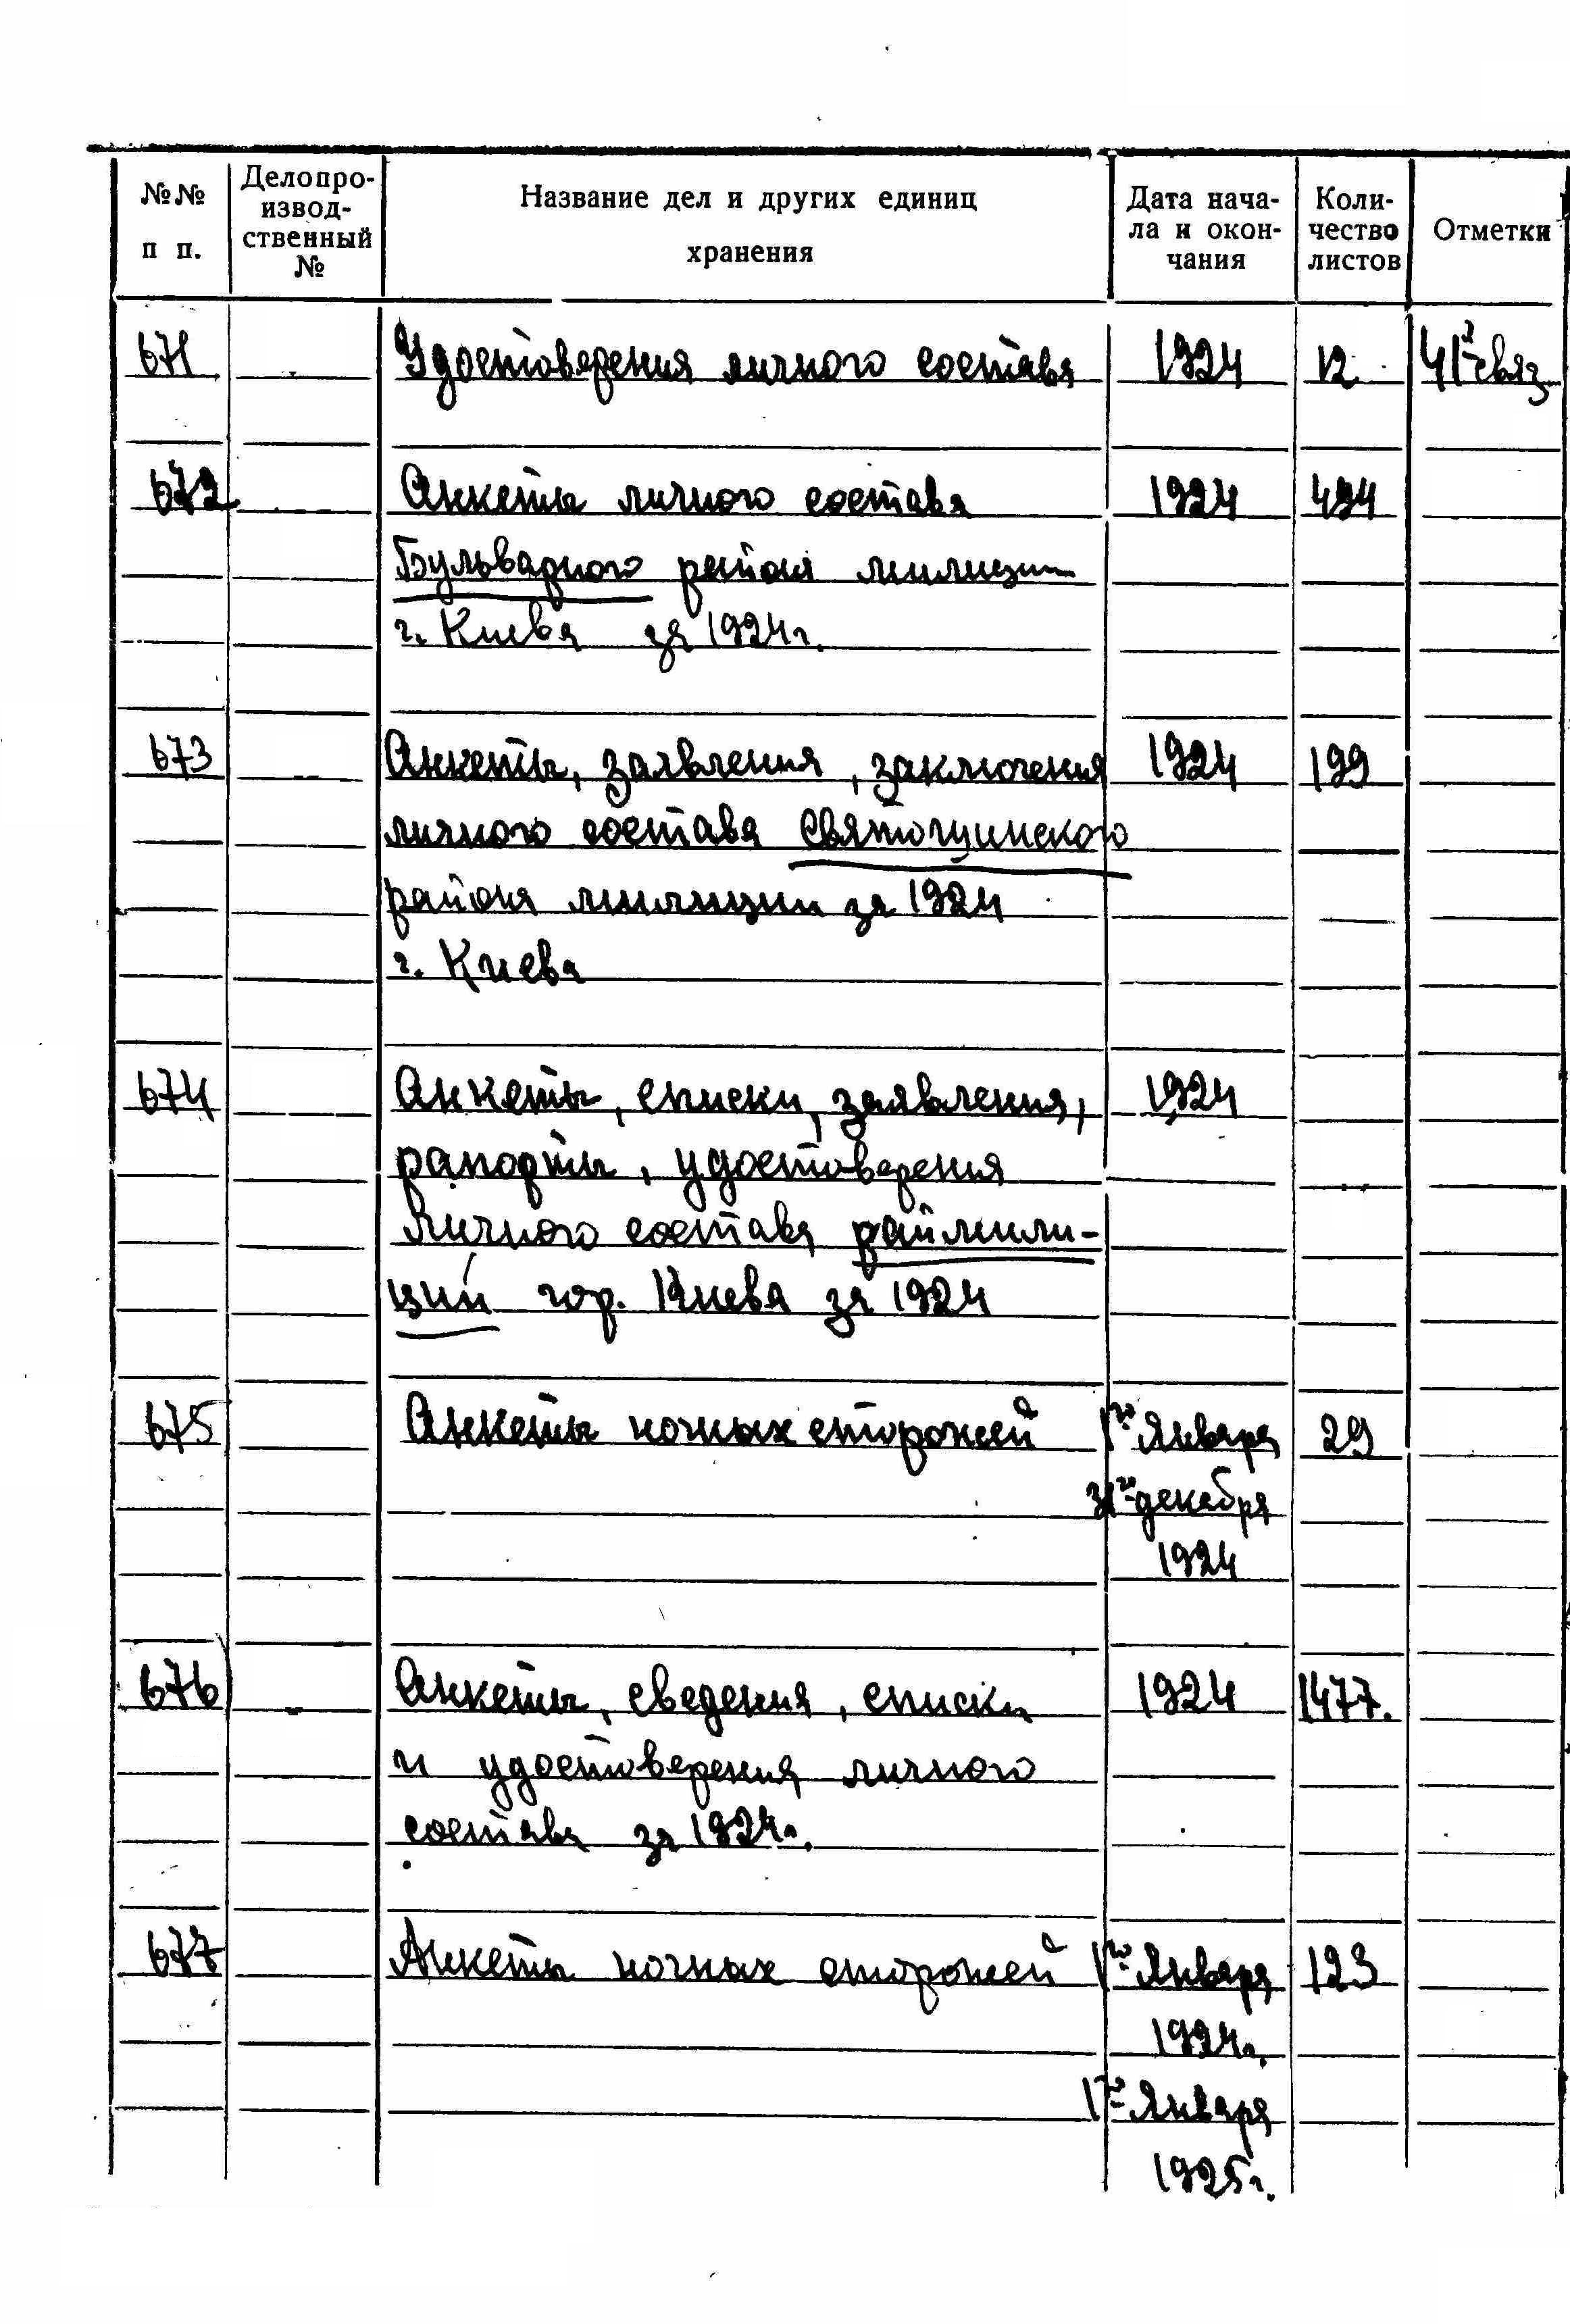 №№ п п.
Делопро-
извод-
ственный
№
Название дел и других единиц
хранения
Дата нача-
ла и окон-
чания
Коли-
чество
листов
Отметки
671 Удостоверения личного состава 1924 12 41я связ
672 Анкеты личного состава 1924 494
Бульварного района милиции
г. Киева за 1924г.
673 Анкеты, заявления, заключения 1924 199
личного состава Святошинского
района милиции за 1924
г. Киева
674 Анкеты, списки, заявления, 1924
рапорты, удостоверения
личного состава раймили-
ций гор. Киева за 1924
675 Анкеты ночных сторожей 1го января 29
31го декабря
1924
676 Анкеты, сведения, списки 1924 1477.
и удостоверения личного
состава за 1924г.
677 Анкеты ночных сторожей 1го января 123
1924г.
1го января
1925г.